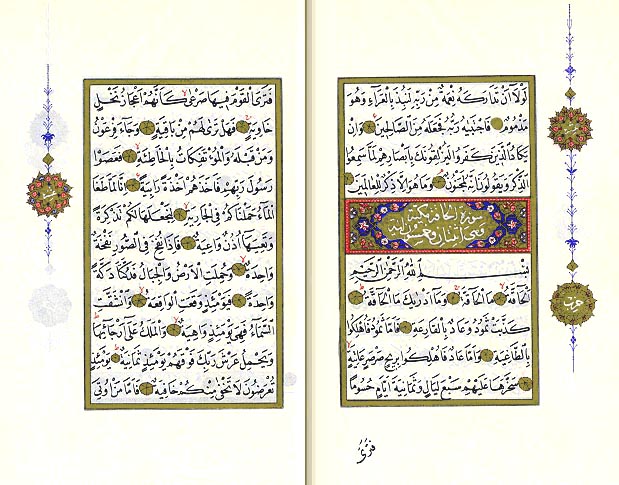 لَوْلَا اَنْ تَدَارَكَهُ نِعْمَةٌ مِنْ رَبِّهِ لَنُبِذَ بِالْعَرَاءِ وَهُوَ
مَذْمُومٌ فَاجْتَبٰيهُ رَبُّهُ فَجَعَلَهُ مِنَ الصَّالِحِينَ وَاِنْ
يَكَادُ الَّذِينَ كَفَرُوا لَيُزْلِقُونَكَ بِاَبْصَارِهِمْ لَمَّا سَمِعُوا
الذِّكْرَ وَيَقُولُونَ اِنَّهُ لَمَجْنُونٌ وَمَا هُوَ اِلَّا ذِكْرٌ لِلْعَالَمِينَ
سورة الحاقة مكية
وهي اثنتان وخمسون آية
بِسْمِ اللّٰهِ الرَّحْمٰنِ الرَّحِيمِ
اَلْحَاقَّةُ مَا الْحَاقَّةُ وَمَا اَدْرٰيكَ مَا الْحَاقَّةُ
كَذَّبَتْ ثَمُودُ وَعَادٌ بِالْقَارِعَةِ فَاَمَّا ثَمُودُ فَاُهْلِكُوا
بِالطَّاغِيَةِ وَاَمَّا عَادٌ فَاُهْلِكُوا بِرِيحٍ صَرْصَرٍ عَاتِيَةٍ
سَخَّرَهَا عَلَيْهِمْ سَبْعَ لَيَالٍ وَثَمَانِيَةَ اَيَّامٍ حُسُومًا
حزب
فترى
فَتَرَى الْقَوْمَ فِيهَا صَرْعٰى كَاَنَّهُمْ اَعْجَازُ نَخْلٍ
خَاوِيَةٍ فَهَلْ تَرٰى لَهُمْ مِنْ بَاقِيَةٍ وَجَاءَ فِرْعَوْنُ
وَمَنْ قَبْلَهُ وَالْمُؤْتَفِكَاتُ بِالْخَاطِئَةِ فَعَصَوْا
رَسُولَ رَبِّهِمْ فَاَخَذَهُمْ اَخْذَةً رَابِيَةً اِنَّا لَمَّا طَغَا
الْمَاءُ حَمَلْنَاكُمْ فِي الْجَارِيَةِ لِنَجْعَلَهَا لَكُمْ تَذْكِرَةً
وَتَعِيَهَا اُذُنٌ وَاعِيَةٌ فَاِذَا نُفِخَ فِي الصُّورِ نَفْخَةٌ
وَاحِدَةٌ وَحُمِلَتِ الْاَرْضُ وَالْجِبَالُ فَدُكَّتَا دَكَّةً
وَاحِدَةً فَيَوْمَئِذٍ وَقَعَتِ الْوَاقِعَةُ وَانْشَقَّتِ
السَّمَاءُ فَهِيَ يَوْمَئِذٍ وَاهِيَةٌ وَالْمَلَكُ عَلٰى اَرْجَائِهَا
وَيَحْمِلُ عَرْشَ رَبِّكَ فَوْقَهُمْ يَوْمَئِذٍ ثَمَانِيَةٌ يَوْمَئِذٍ
تُعْرَضُونَ لَا تَخْفٰى مِنْكُمْ خَافِيَةٌ فَاَمَّا مَنْ اُوتِيَ